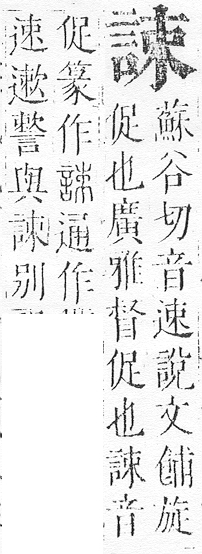 誎
蘇谷切音速說文餔旋
促也廣雅督促也誎音
促篆作誎通作
速遬與諫別